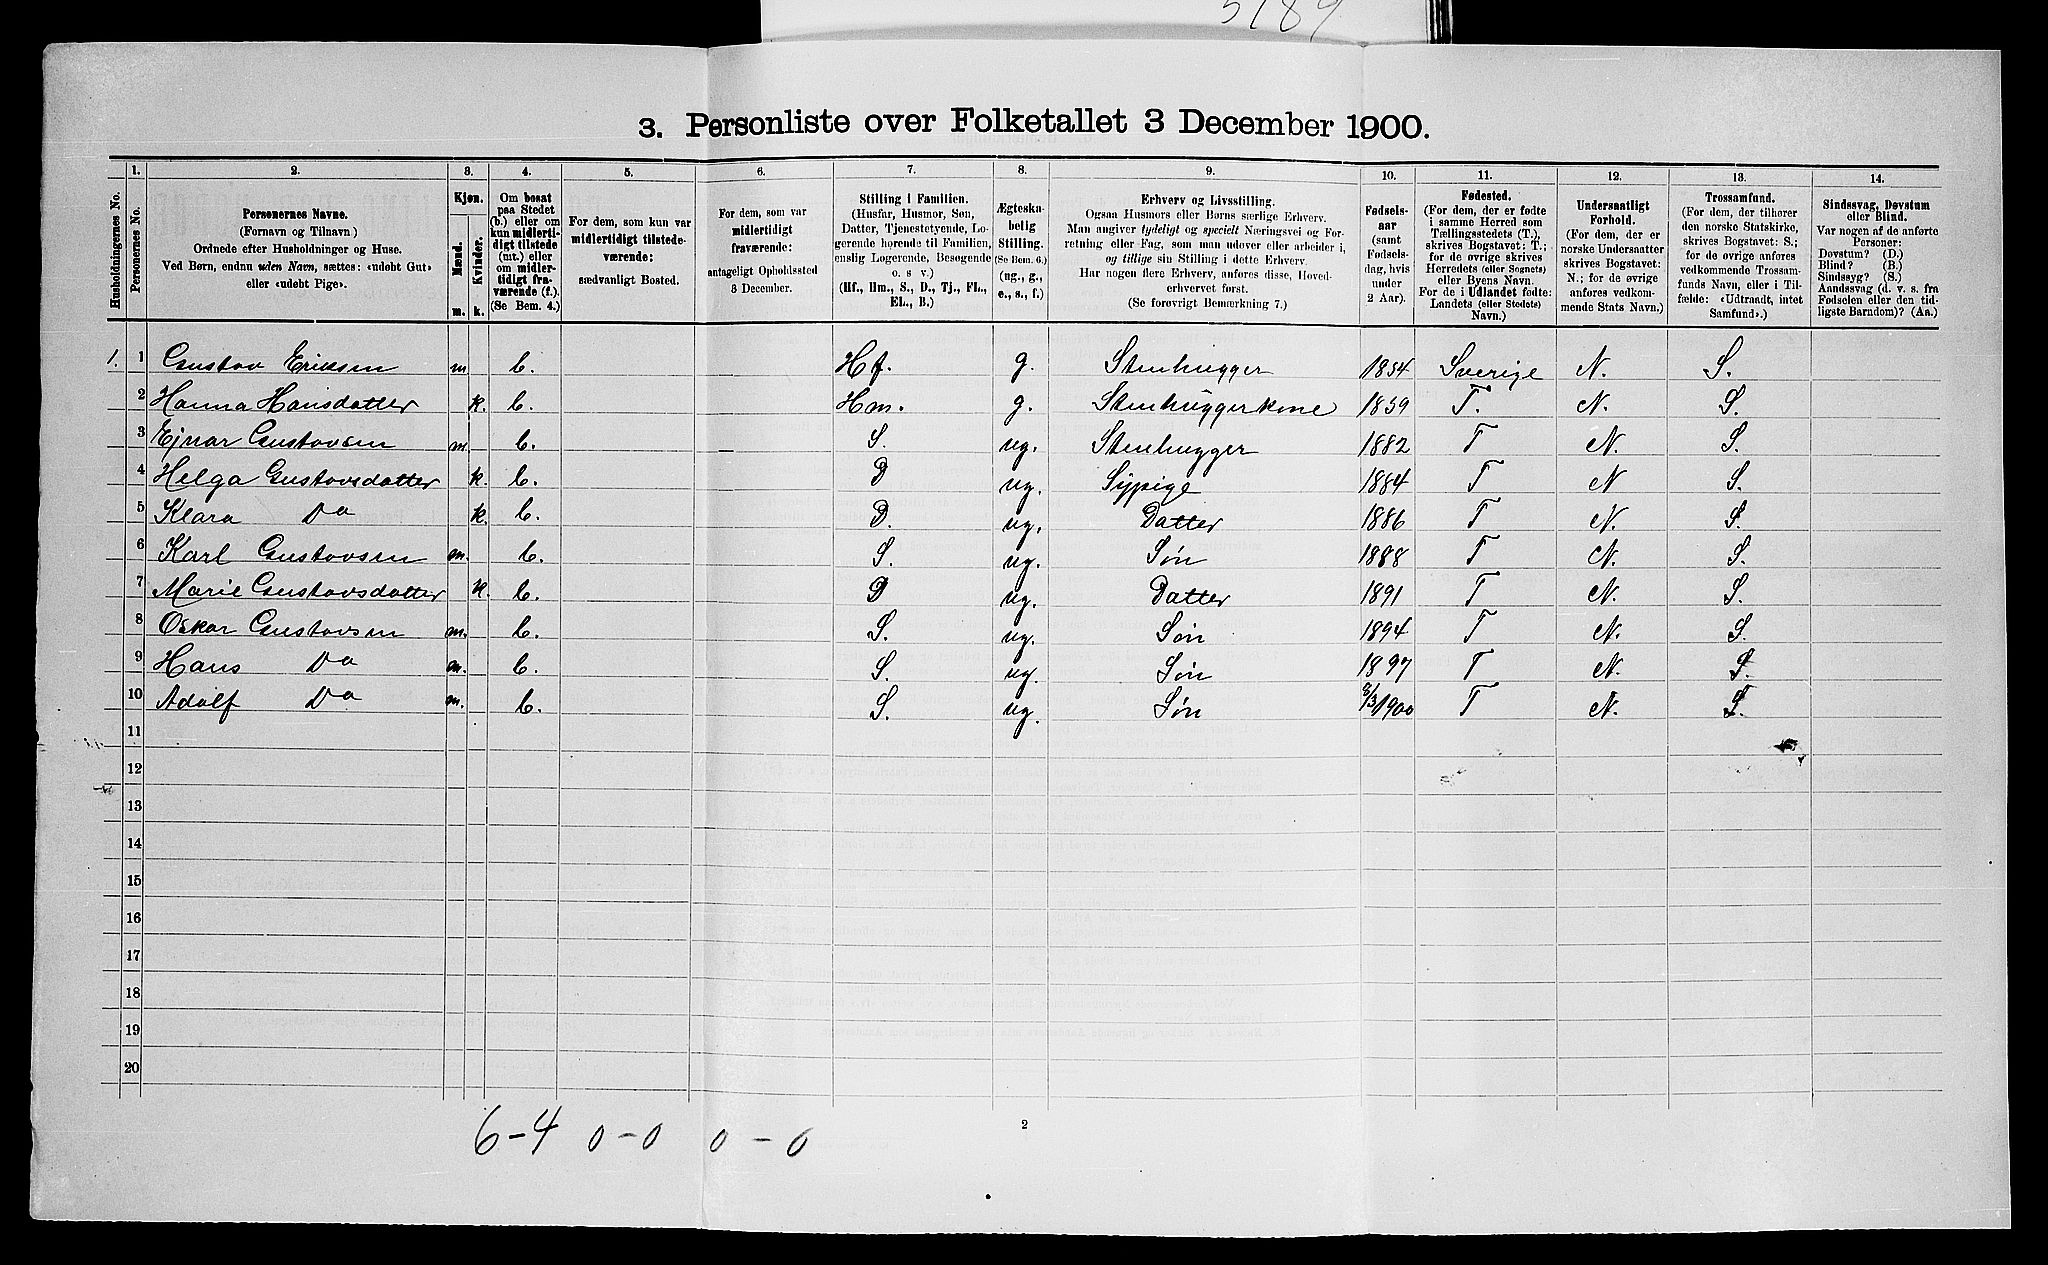 5189
3. Personliste over Folketallet 3 December 1900.
Husholdningernes No.
1.
Personernes No.
2.
Personernes Navne.
(Fornavn og Tilnavn)
Ordnede efter Husholdninger og Huse.
Ved Børn, endnu uden Navn, sættes: «udøbt Gut»
eller «udøbt Pige».
3.
Kjøn.
Mænd.
Kvinder.
m. k.
4.
Om bosat
paa Stedet
(b.) eller om
kun midlerti-
digt tilstede
(mt.) eller
om midler-
tidigt fra-
værende (f.).
(Se Bem. 4.)
5.
For dem, som kun var
midlertidigt tilstede-
værende:
sædvanligt Bosted.
6.
For dem, som var
midlertidigt
fraværende:
antageligt Opholdssted
3 December.
7.
Stilling i Familien.
(Husfar, Husmor, Søn,
Datter, Tjenestetyende, Lo-
gerende hørende til Familien,
enslig Logerende, Besøgende
o. s v.)
(Hf., Hm., S., D., Tj., FL.,
EL., B.)
8.
Ægteska-
belig
Stilling.
(Se Bem. 6.)
(ug., g.,
e., s., f.)
9.
Erhverv og Livsstilling.
Ogsaa Husmors eller Børns særlige Erhverv.
Man angiver tydeligt og specielt Næringsvei og For-
retning eller Fag, som man udøver eller arbeider i,
og tillige sin Stilling i dette Erhverv.
Har nogen flere Erhverv, anføres disse, Hoved-
erhvervet først.
(Se forøvrigt Bemærkning 7.)
10.
Fødsels-
aar
(samt
Fødsels-
dag, hvis
under
2 Aar).
11.
Fødested.
(For dem, der er fødte
i samme Herred som
Tællingsstedets (T.),
skrives Bogstavet: T.;
for de øvrige skrives
Herredets (eller Sognets)
eller Byens Navn.
For de i Udlandet fødte:
Landets (eller Stedets)
Navn.)
12.
Undersaatligt
Forhold.
(For dem, der er
norske Undersaatter
skrives Bogstavet:
N.; for de øvrige
anføres vedkom-
mende Stats Navn.)
13.
Trossamfund.
(For dem, der tilhører
den norske Statskirke,
skrives Bogstavet: S.;
for de øvrige anføres
vedkommende Trossam-
funds Navn, eller i Til-
fælde: «Udtraadt, intet
Samfund».)
14.
Sindssvag, Døvstum
eller Blind.
Var nogen af de anførte
Personer:
Døvstum? (D.)
Blind? (B.)
Sindssyg? (S.)
Aandssvag (d. v. s. fra
Fødselen eller den tid-
ligste Barndom)? (Aa.)
1. 1 Gustav Eriksen m b. Hf. g. Stenhugger 1854 Sverige N. S.
2 Hanna Hansdatter k. b. Hm. g. Stenhuggerkone 1859 T. N. S.
3 Ejnar Gustavsen m b. S. ug. Stenhugger 1882 T N. S.
4 Helga Gustavsdatter k. b. D ug. Sypige 1884 T N S.
5 Klara Do k. b. D. ug. Datter 1886 T N. S.
6 Karl Gustavsen m. b. S. ug. Søn 1888 T N. S.
7 Marie Gustavsdatter k. b. D ug. Datter 1891 T N. S.
8 Oskar Gustavsen m. b. S. ug. Søn 1894 T N. S.
9 Hans Do m. b. S. ug. Søn 1897 T N. S.
10 Adolf Do m. b. S. ug. Søn 8/3 1900 T N. S.
11
12
13
14
15
16
17
18
19
20
6-4 0-0 0-0
2